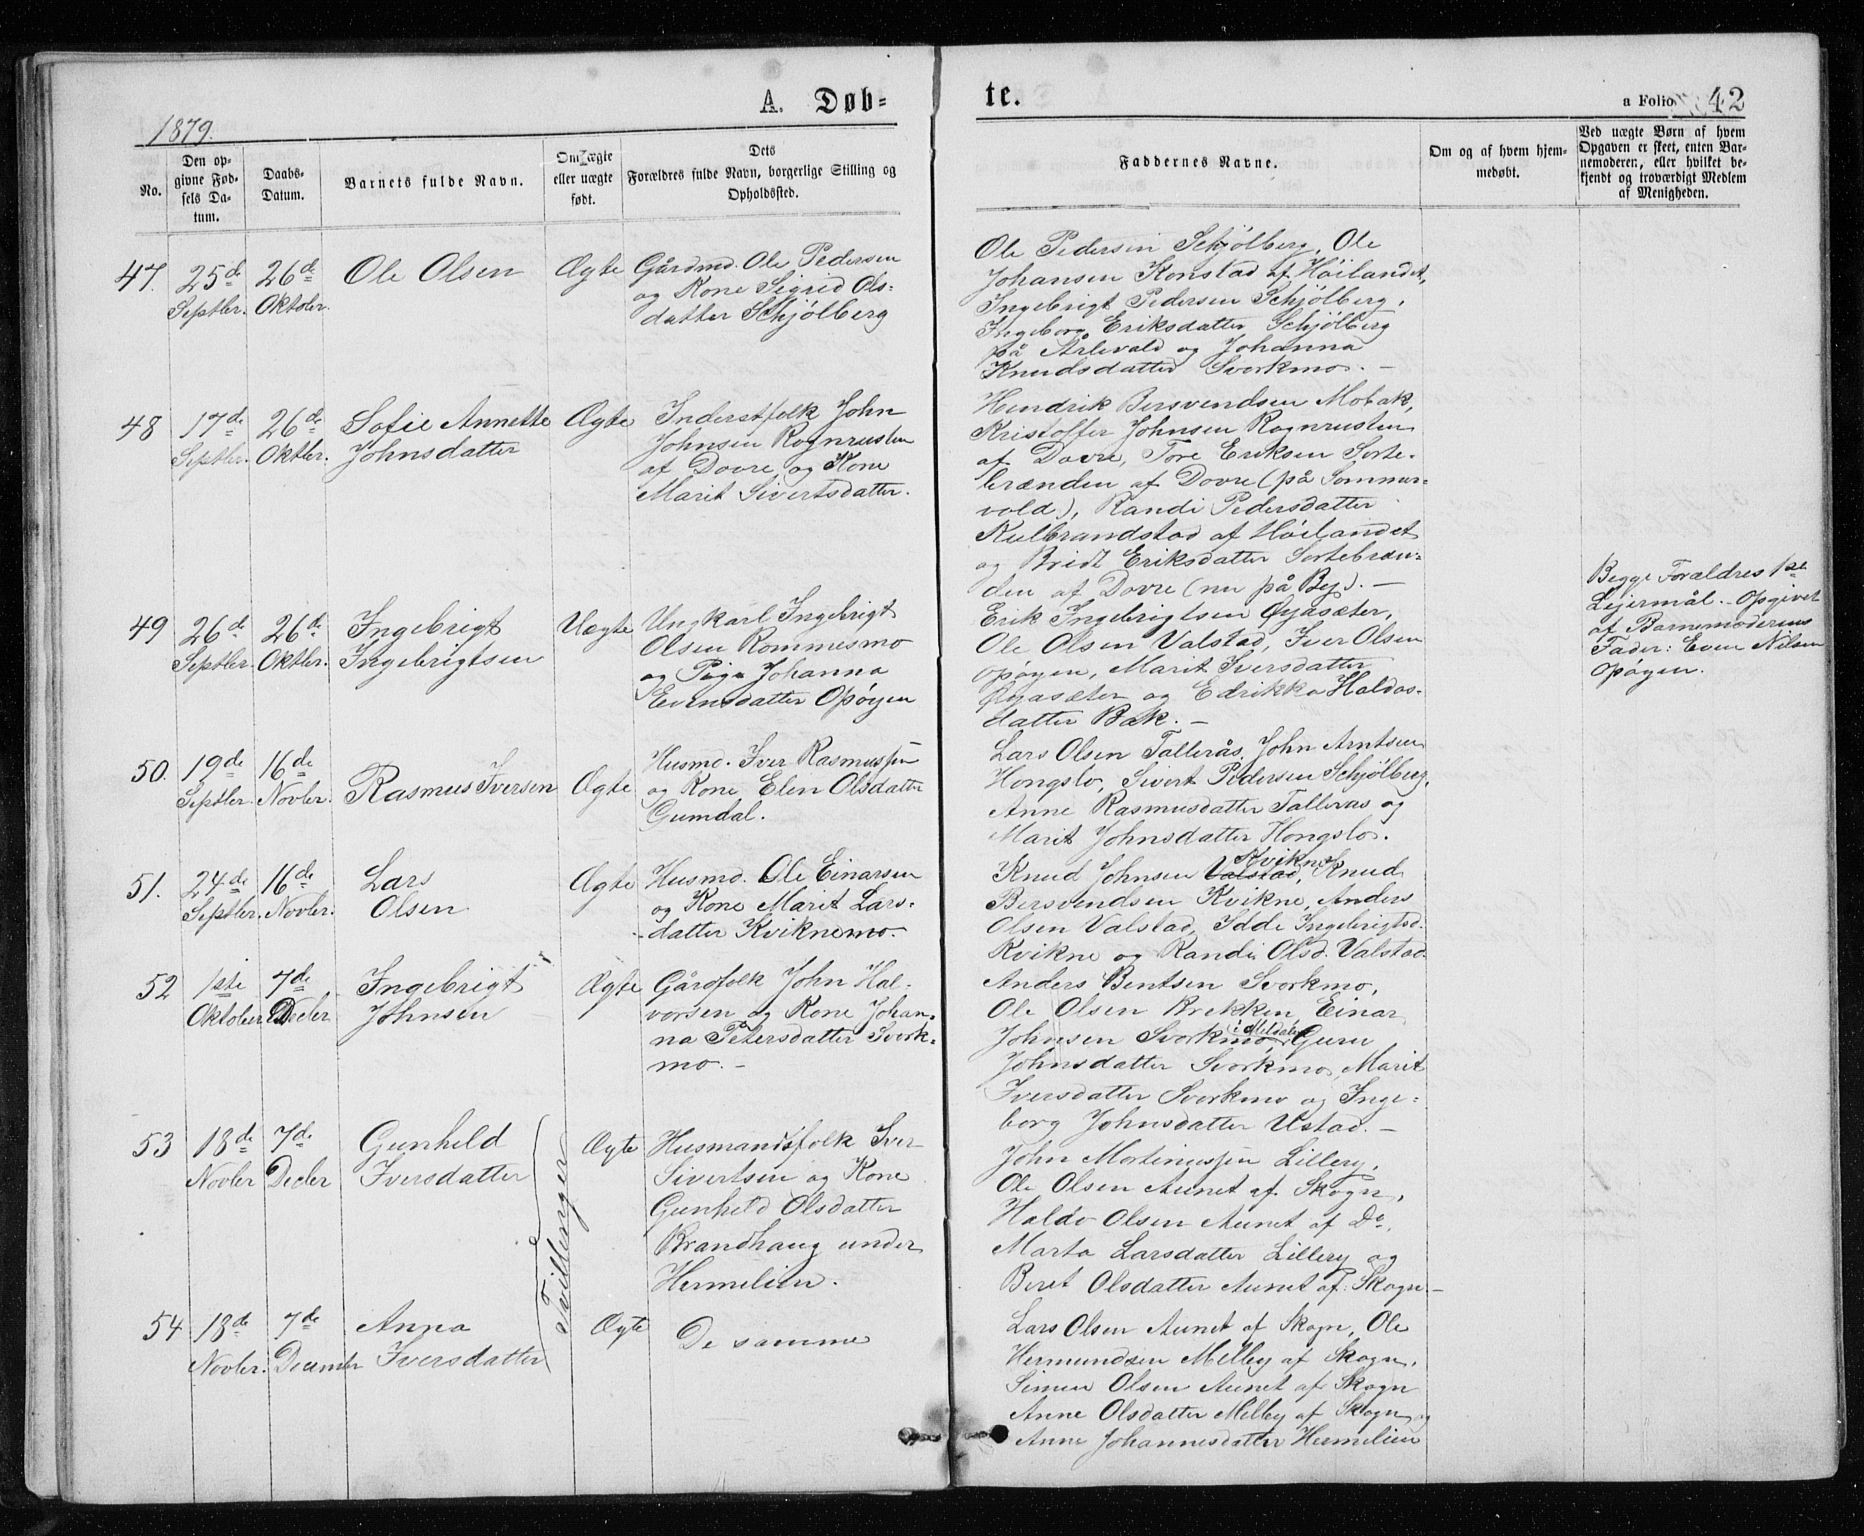 1879.
A. Døb-
te.
a Folio 42
No.
Den op-
givne Fød-
sels Da-
tum.
Daabs-
Datum.
Barnets fulde Navn.
Om ægte
eller uægte
født.
Dets
Forældres fulde Navn, borgerlige Stilling og
Opholdssted.
Faddernes Navne.
Om og af hvem hjem-
medøbt.
Ved uægte Børn af hvem
Opgaven er skeet, enten Bar-
nemoderen, eller hvilket be-
kjendt og troværdigt Medlem
af Menigheden.
47.
25de
Septbr.
26de
Oktober.
Ole Olsen
Ægte
Gårdmd. Ole Pedersen
og Kone Sigrid Ols-
datter Schjølberg
Ole Pedersen Schjølberg, Ole
Johansen Konstad af Høilandet,
Ingebrigt Pedersen Schjølberg,
Ingeborg Eriksdatter Schjølberg
på Årlivold og Johanna
Knudsdatter Svorkmo. –
48
17de
Septbr.
26de
Oktbr.
Sofie Annette
Johnsdatter
Ægte
Inderstfolk John
Johnsen Rognrusten
af Dovre, og Kone
Marit Sivertsdatter.
Hendrik Bersvendsen Mobak,
Kristoffer Johnsen Rognrusten
af Dovre, Tore Eriksen Sorte-
brænden af Dovre (på Sommer-
vold), Randi Pedersdatter
Kulbrandstad af Høilandet
og Bredt Eriksdatter Sortebræn-
den af Dovre (nu på By). –
49
26de
Septbr.
26de
Oktbr.
Ingebrigt
Ingebrigtsen
Uægte
Ungkarl Ingebrigt
Olsen Rommesmo
og Pige Johanna
Evensdatter Opøyen
Erik Ingebrigtsen Øyasæter,
Ole Olsen Valstad, Iver Olsen
Opøyen, Marit Iversdatter
Øyasæter og Edrikka Haldos-
datter Bak. –
Begge Forældres 1ste
Lejermål. – Opgivet
af Barnemoderens
Fader: Even Nilsen
Opøyen.
50.
19de
Septbr.
16de
Novbr.
Rasmus Iversen
Ægte
Husmd. Iver Rasmussen
og Kone Elen Olsdatter
Gumdal.
Lars Olsen Tallerås, John Arntsen
Hongslo, Sivert Pedersen Schjølberg,
Anne Rasmusdatter Talleras og
Marit Johnsdatter Hongslo.
51.
24de
Septbr.
16de
Novbr.
Lars
Olsen
Ægte
Husmd. Ole Einarsen
og Kone Marit Lars-
datter Kviknemo.
Kvikne
Knud Johnsen Valstad, Knud
Bersvendsen Kvikne, Anders
Olsen Valstad, Idde Ingebrigtsd.
Kvikne og Randi Olsd. Valstad.
52
1ste
Oktober
7de
Decbr
Ingebrigt
Johnsen
Ægte
Gårdfolk John Hal-
vorsen og Kone Johan-
na Petersdatter Svork-
mo. –
Anders Bentsen Svorkmo,
Ole Olsen Brekken, Einar
Johnsen Svorkmo, i Meldalen, Guru
Johnsdatter Svorkmo, Marit
Iversdatter Svorkmo og Inge-
borg Johnsdatter Ustad. –
53
18de
Novbr
7de
Decbr
Gunhild
Iversdatter
Tvillinger
Ægte
Husmandsfolk Iver
Sivertsen og Kone
Gunhild Olsdatter
Brandhaug under
Hermelien.
John Mortinussen Lillery,
Ole Olsen Aunet af Skogn,
Haldo Olsen Aunet af Do,
Marta Larsdatter Lillery og
Beret Olsdatter Aunet af Skogn. –
54
18de
Novbr.
7de
December
Anna
Iversdatter
Ægte
De samme
Lars Olsen Aunet af Skogn, Ole
Hermundsen Melby af Skogn,
Simen Olsen Aunet af Skogn
Anne Olsdatter Melby af Skogn og
Anne Johannesdatter Hermelien